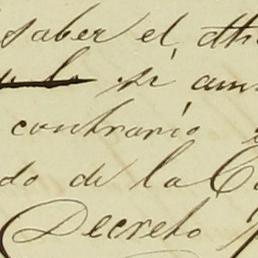 saber el
si
contrario
do de la
Decreto